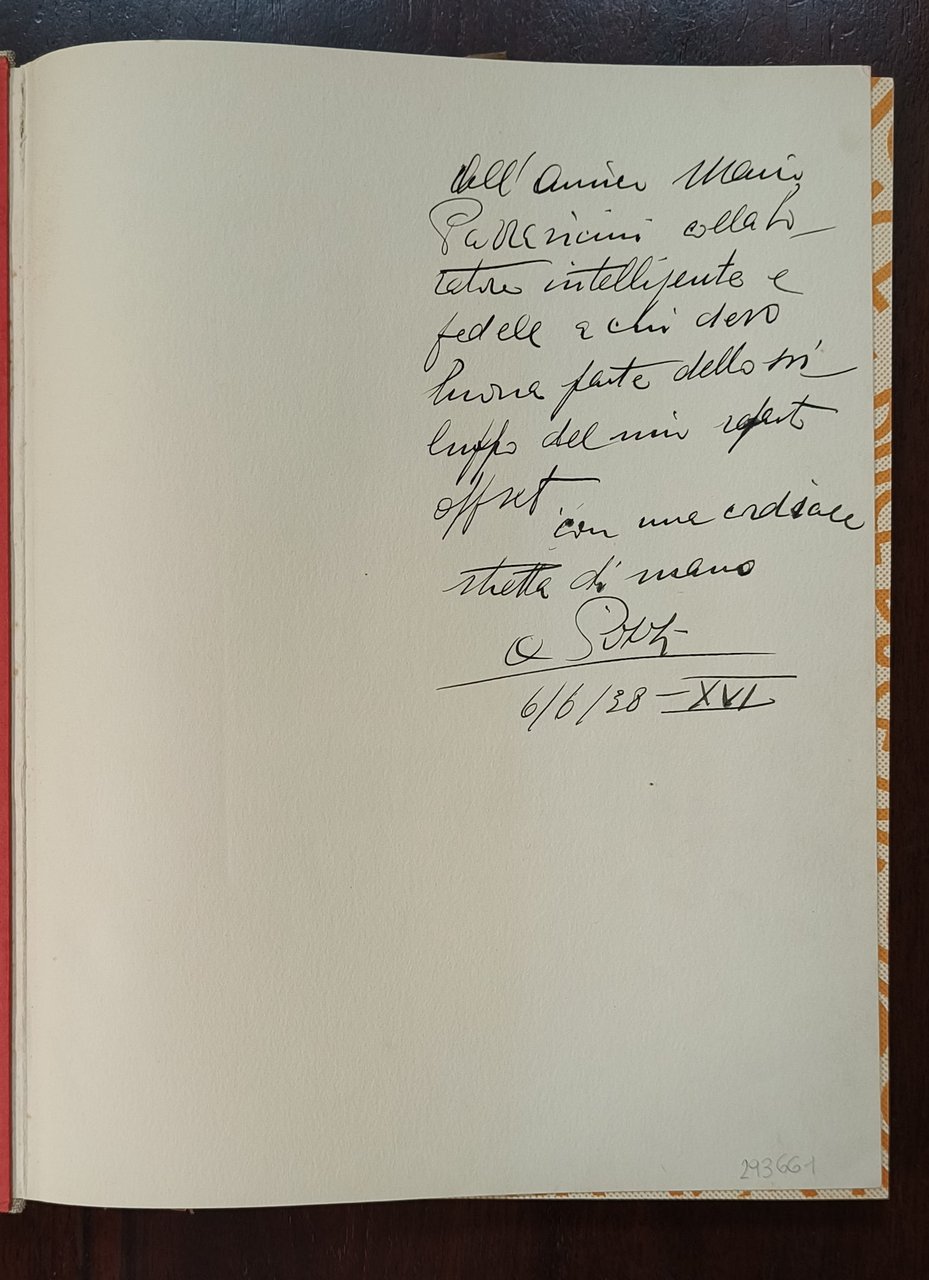 all' amico Mario
collabo-
ratore intelligente e
fedele a chi devo
buona parte dello svi-
luppo del mio reparto
offset
con una cordiale
stretta di mano
6/6/38 - XVI
293661